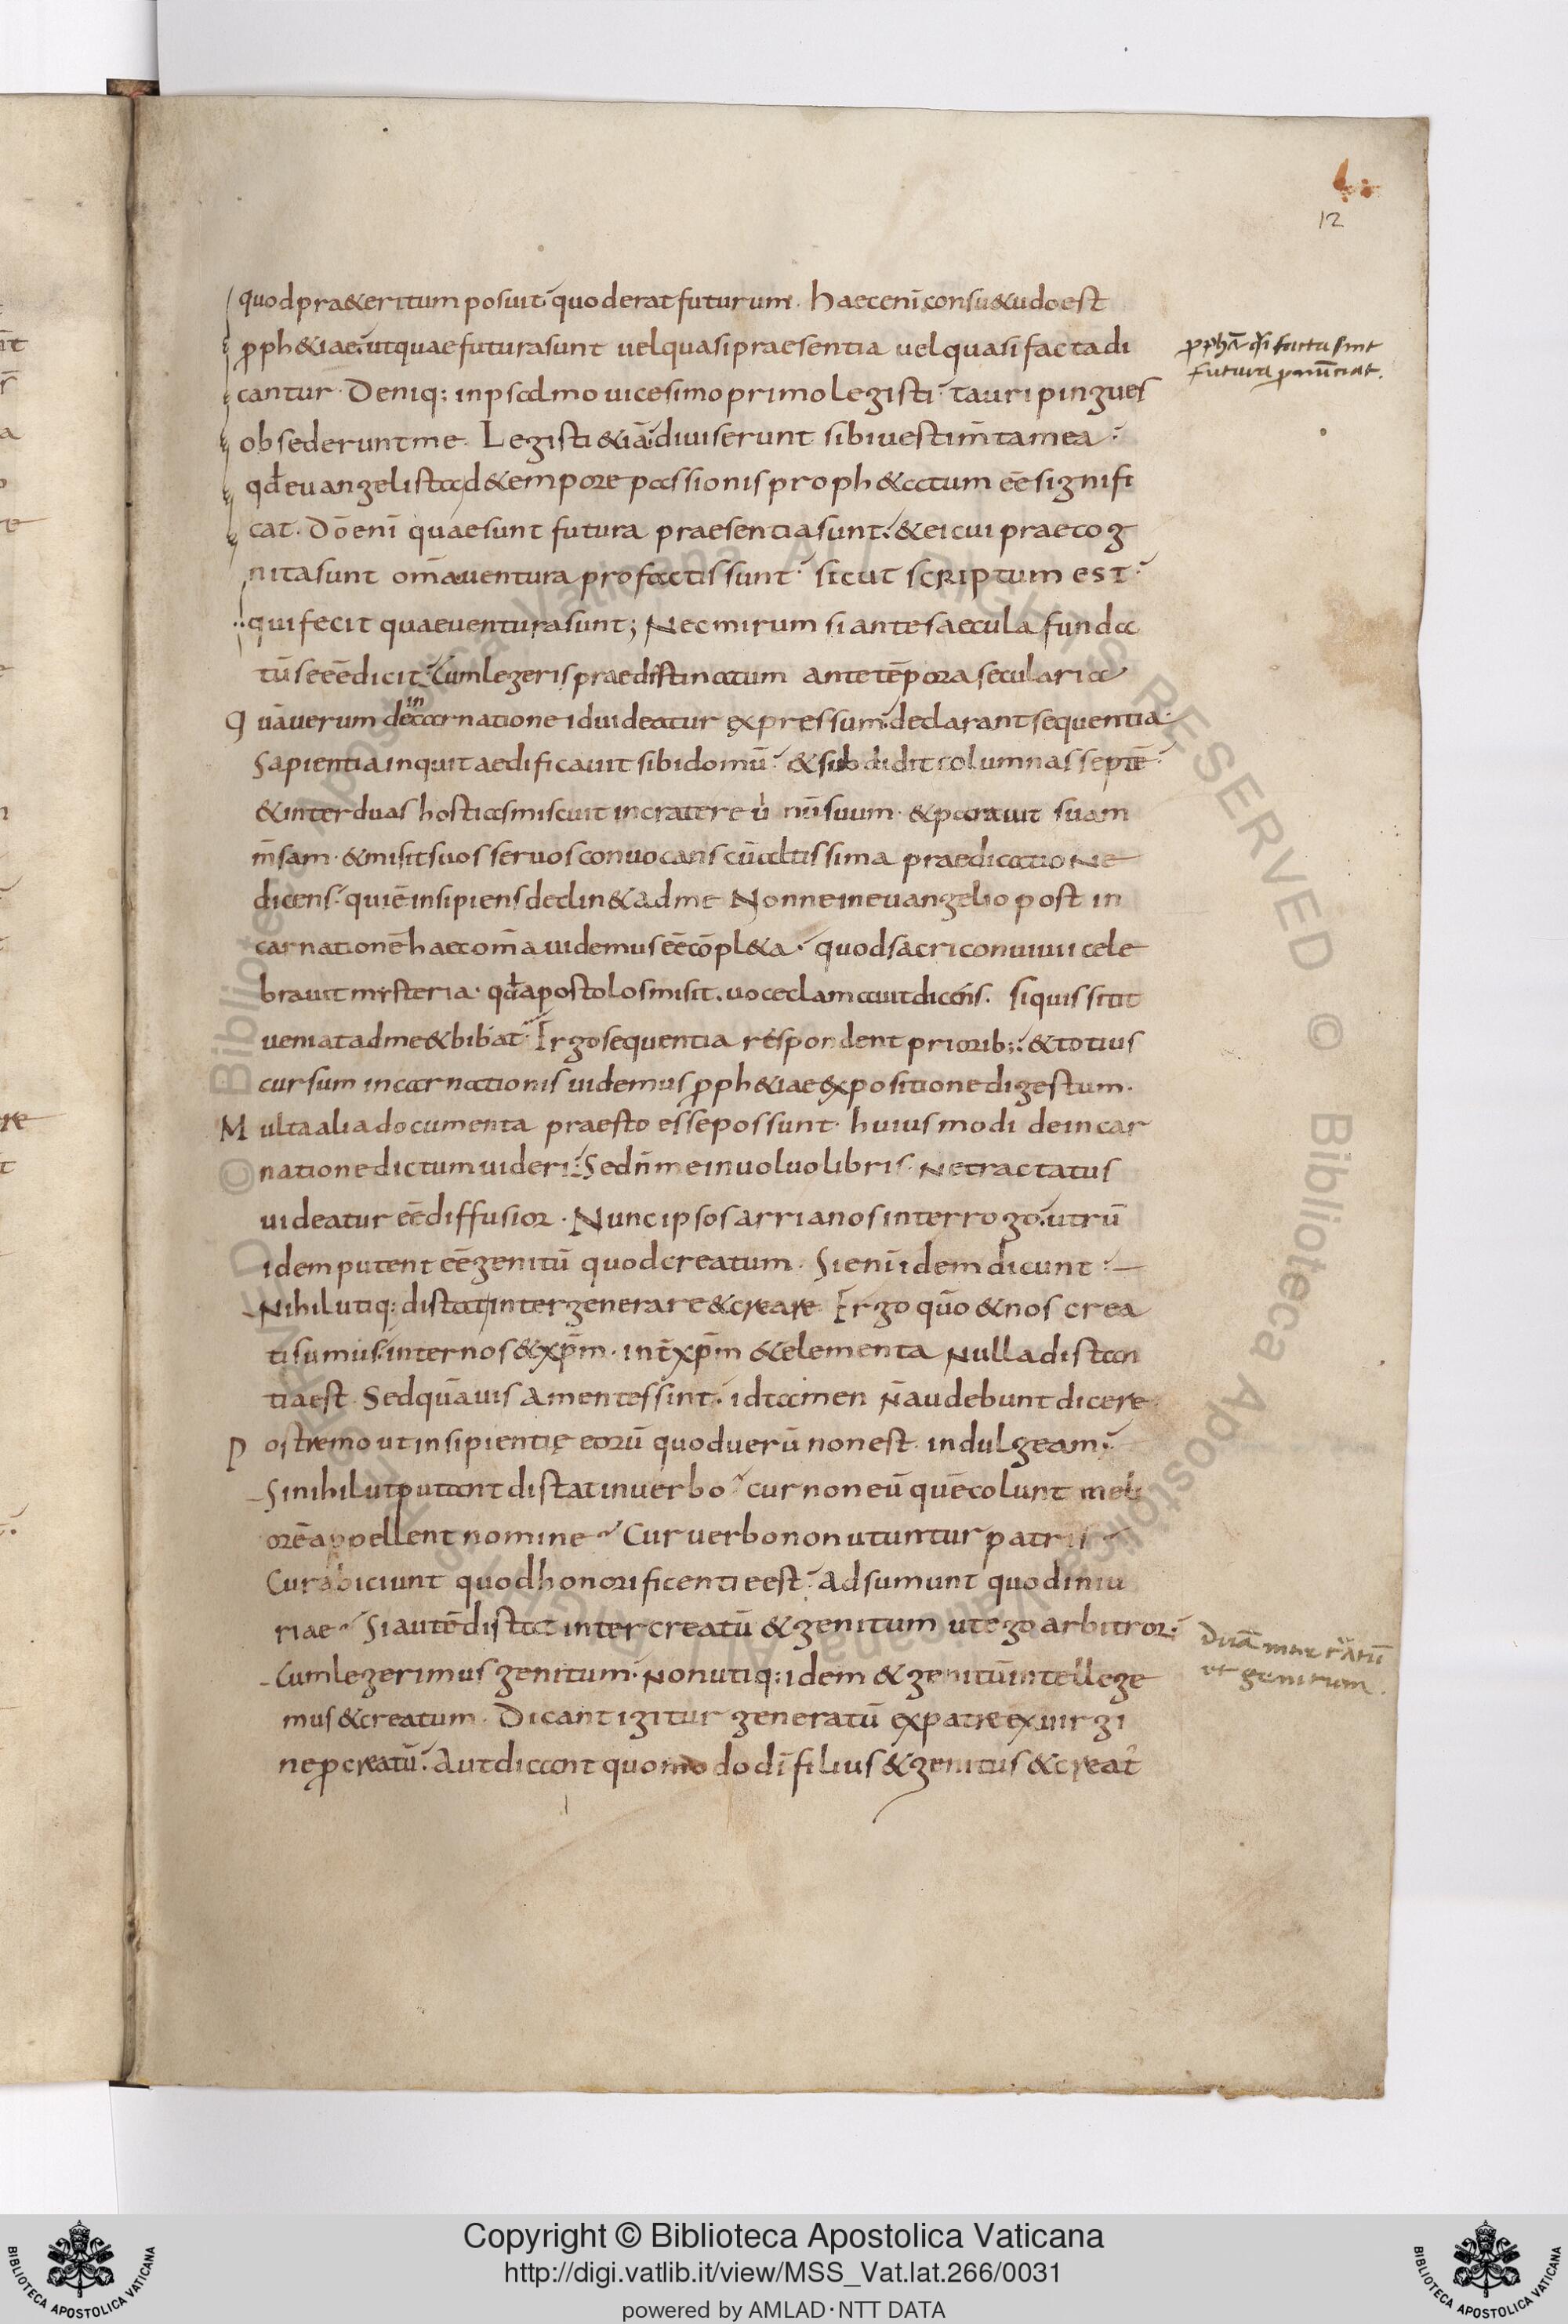 12
quod pra&eritum posuit quod erat futurum. haec eni consu&udo est
ꝓph&iae. ut quae futura sunt uel quasi praesentia uel quasi facta di
cantur. Deniq; in psalmo uicesimo primo legisti. tauri pingues
obsederunt me. Legisti &iā. diuiserunt sibi uestim̄ta mea.
qd̄ euangelista ad &empore passionis proph&atum eē signifi
cat. Dō enī quae sunt futura praesentia sunt. & ei cui praecog
nita sunt om̄a uentura pro factis sunt. sicut scriptum est.
qui fecit quae uentura sunt; Nec mirum si ante saecula funda
tū se eē dicit. Cum legeris praedistinatum ante tēpora secularia
Quā uerum de incarnatione id uideatur expressum. declarant sequentia.
Sapientia inquit aedificauit sibi domū. & subdidit columnas septē.
& inter duas hostias miscuit in cratere uinū suum. & parauit suam
m̄sam. & misit suos seruos conuocans cū altissima praedicatione
dicens. qui ē insipiens declin& ad me Nonne in euangelio post in
carnationē haec om̄a uidemus eē cōpl&a. quod sacri conuiuii cele
brauit mysteria. qd̄ apostolos misit. uoce clamauit dicens. Si quis sitit
ueniat ad me & bibat. Ergo sequentia respondent priorib;. & totius
cursum incarnationis uidemus ꝓph&iae expositione digestum.
Multa alia documenta praesto esse possunt. huius modi de incar
natione dictum uideri. Sed n̄ me inuoluo libris. Ne tractatus
uideatur eē diffusior. Nunc ipsos arrianos interrogo. utrū
idem putent eē genitū quod creatum. Si enī idem dicunt.
Nihil utiq; distat inter generare & creare. Ergo quō & nos crea
ti sumus. inter nos & xp̄m. int̄ xp̄m & elementa Nulla distan
tia est. Sed quāuis amentes sint. id tamen n̄ audebunt dicere.
Postremo ut insipientię eorū quod uerū non est. indulgeam.
Si nihil ut putant distat in uerbo cur non eū quē colunt meli
orē appellent nomine Cur uerbo non utuntur patris
Cur abiciunt quod honorificentie est. Adsumunt quod iniu
riae Si autē distat inter creatū & genitum ut ego arbitror.
Cum legerimus genitum. Non utiq; idem & genitū intellege
mus & creatum. Dicant igitur generatū ex patre ex uirgi
ne ꝓcreatū. Aut dicant quomodo dī filius & genitus & creat᷒
ꝓphā q̄si facta sint
futura ꝓnūciat.
et genitum.
© Biblioteca Apostolica Vaticana ALL RIGHTS RESERVED © Biblioteca Apostolica Vaticana ALL RIGHTS RESERVED
Copyright © Biblioteca Apostolica Vaticana
http://digi.vatlib.it/view/MSS_Vat.lat.266/0031
powered by AMLAD·NTT DATA
BIBLIOTECA APOSTOLICA VATICANA
BIBLIOTECA APOSTOLICA VATICANA